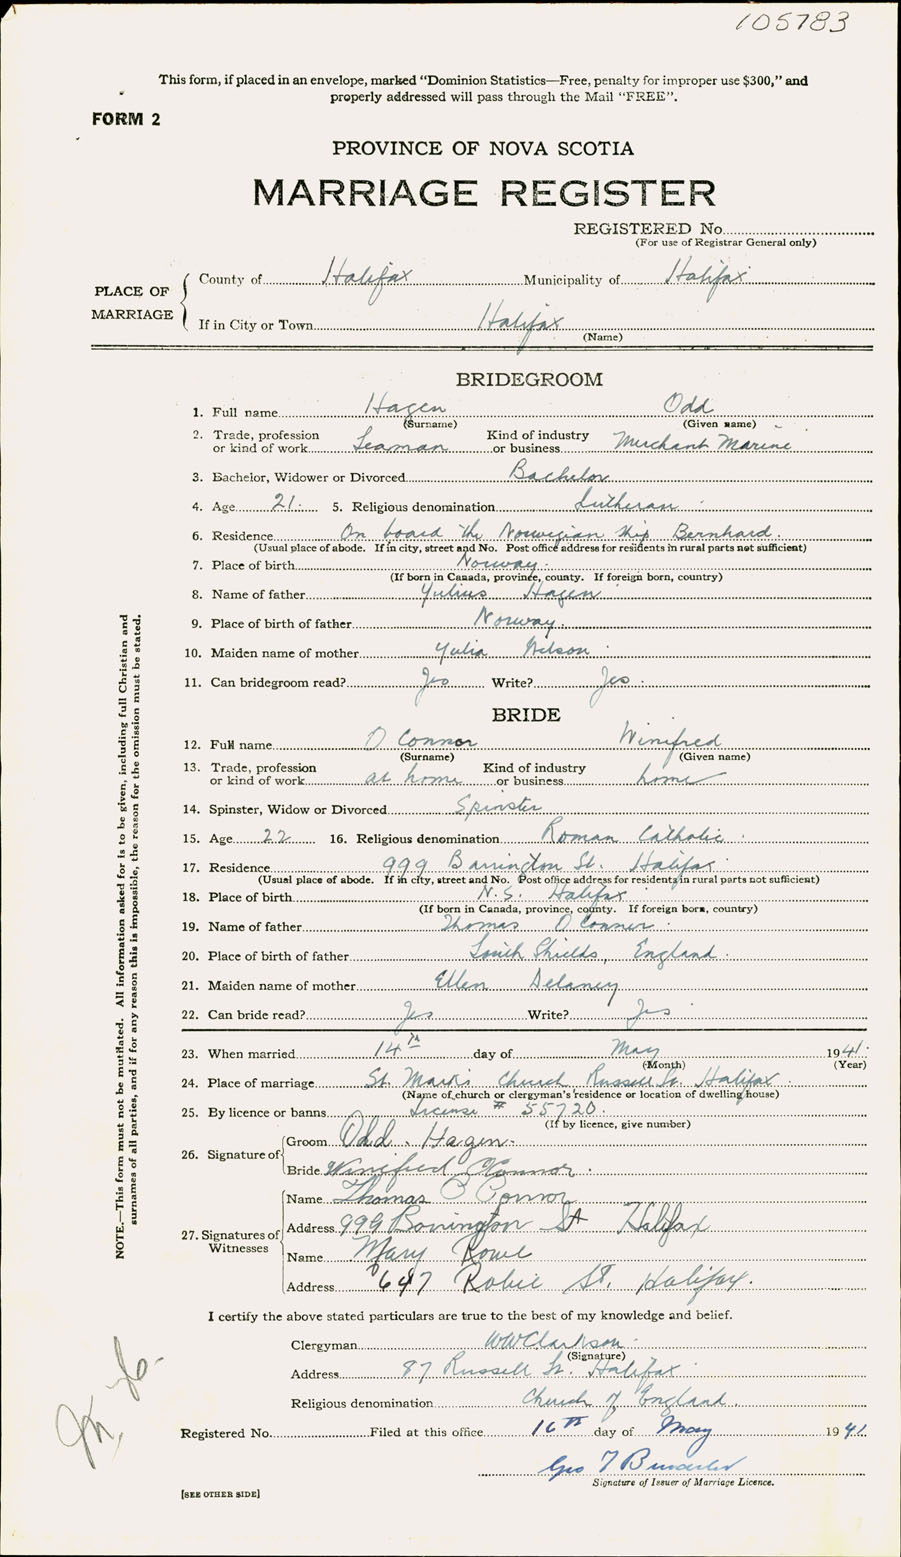 105783
This form, if placed in an envelope, marked "Dominion Statistics—Free, penalty for improper use $300," and
properly addressed will pass through the Mail "FREE".
FORM 2
PROVINCE OF NOVA SCOTIA
MARRIAGE REGISTER
REGISTERED No
(For use of Registrar General only)
PLACE OF MARRIAGE
County of Halifax Municipality of Halifax
If in City or Town Halifax
(Name)
BRIDEGROOM
1. Full name Hagen Odd
(Surname) (Given name)
2. Trade, profession or kind of work Seaman Kind of industry or business Merchant Marine
3. Bachelor, Widower or Divorced Bachelor
4. Age 21. 5. Religious denomination Lutheran
6. Residence On board the Norwegian ship Bernhard.
(Usual place of abode. If in city, street and No. Post office address for residents in rural parts not sufficient)
7. Place of birth Norway.
(If born in Canada, province, county. If foreign born, country)
8. Name of father Yulius Hagen
9. Place of birth of father Norway.
10. Maiden name of mother Yulia Nilson
11. Can bridegroom read? Yes Write? Yes
BRIDE
12. Full name O Connor Winifred
(Surname) (Given name)
13. Trade, profession or kind of work at home Kind of industry or business home
14. Spinster, Widow or Divorced Spinster
15. Age 22 16. Religious denomination Roman Catholic
17. Residence 999 Barrington St. Halifax
(Usual place of abode. If in city, street and No. Post office address for residents in rural parts not sufficient)
18. Place of birth N.S. Halifax
(If born in Canada, province, county. If foreign born, country)
19. Name of father Thomas O Connor
20. Place of birth of father South Shields, England.
21. Maiden name of mother Ellen Delaney
22. Can bride read? Yes Write? Yes
23. When married 14th day of May 1941.
(Month) (Year)
24. Place of marriage St. Mark's Church Russell St. Halifax
(Name of church or clergyman's residence or location of dwelling house)
25. By licence or banns License # 55720.
(If by licence, give number)
26. Signature of Groom Odd. Hagen.
Bride Winifred O'Connor.
27. Signatures of Witnesses Name Thomas O Connor
Address 999 Barrington St Halifax
Name Mary Rowe
Address 647 Robie St. Halifax.
I certify the above stated particulars are true to the best of my knowledge and belief.
Clergyman WW Clarkson.
(Signature)
Address 87 Russell St. Halifax
Religious denomination Church of England.
Registered No. Filed at this office 16th day of May 1941
Geo T
Signature of Issuer of Marriage Licence.
[SEE OTHER SIDE]
NOTE.—This form must not be mutilated. All information asked for is to be given, including full Christian and
surnames of all parties, and if for any reason this is impossible, the reason for the omission must be stated.